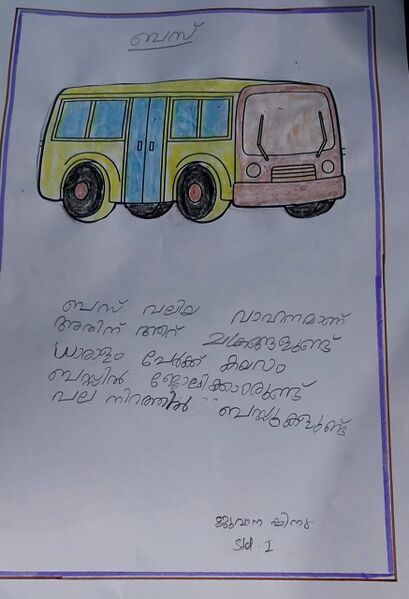 ബസ്
ബസ് വലിയ വാഹനമാണ്
അതിന് ആറ് ചക്രങ്ങളുണ്ട്
ധാരാളം പേർക്ക് കയറാം
ബസ്സിൽ ജോലിക്കാരുണ്ട്
പല നിറത്തിൽ ബസ്സുകളുണ്ട്
ജുവാന ഷിനു
Std. I